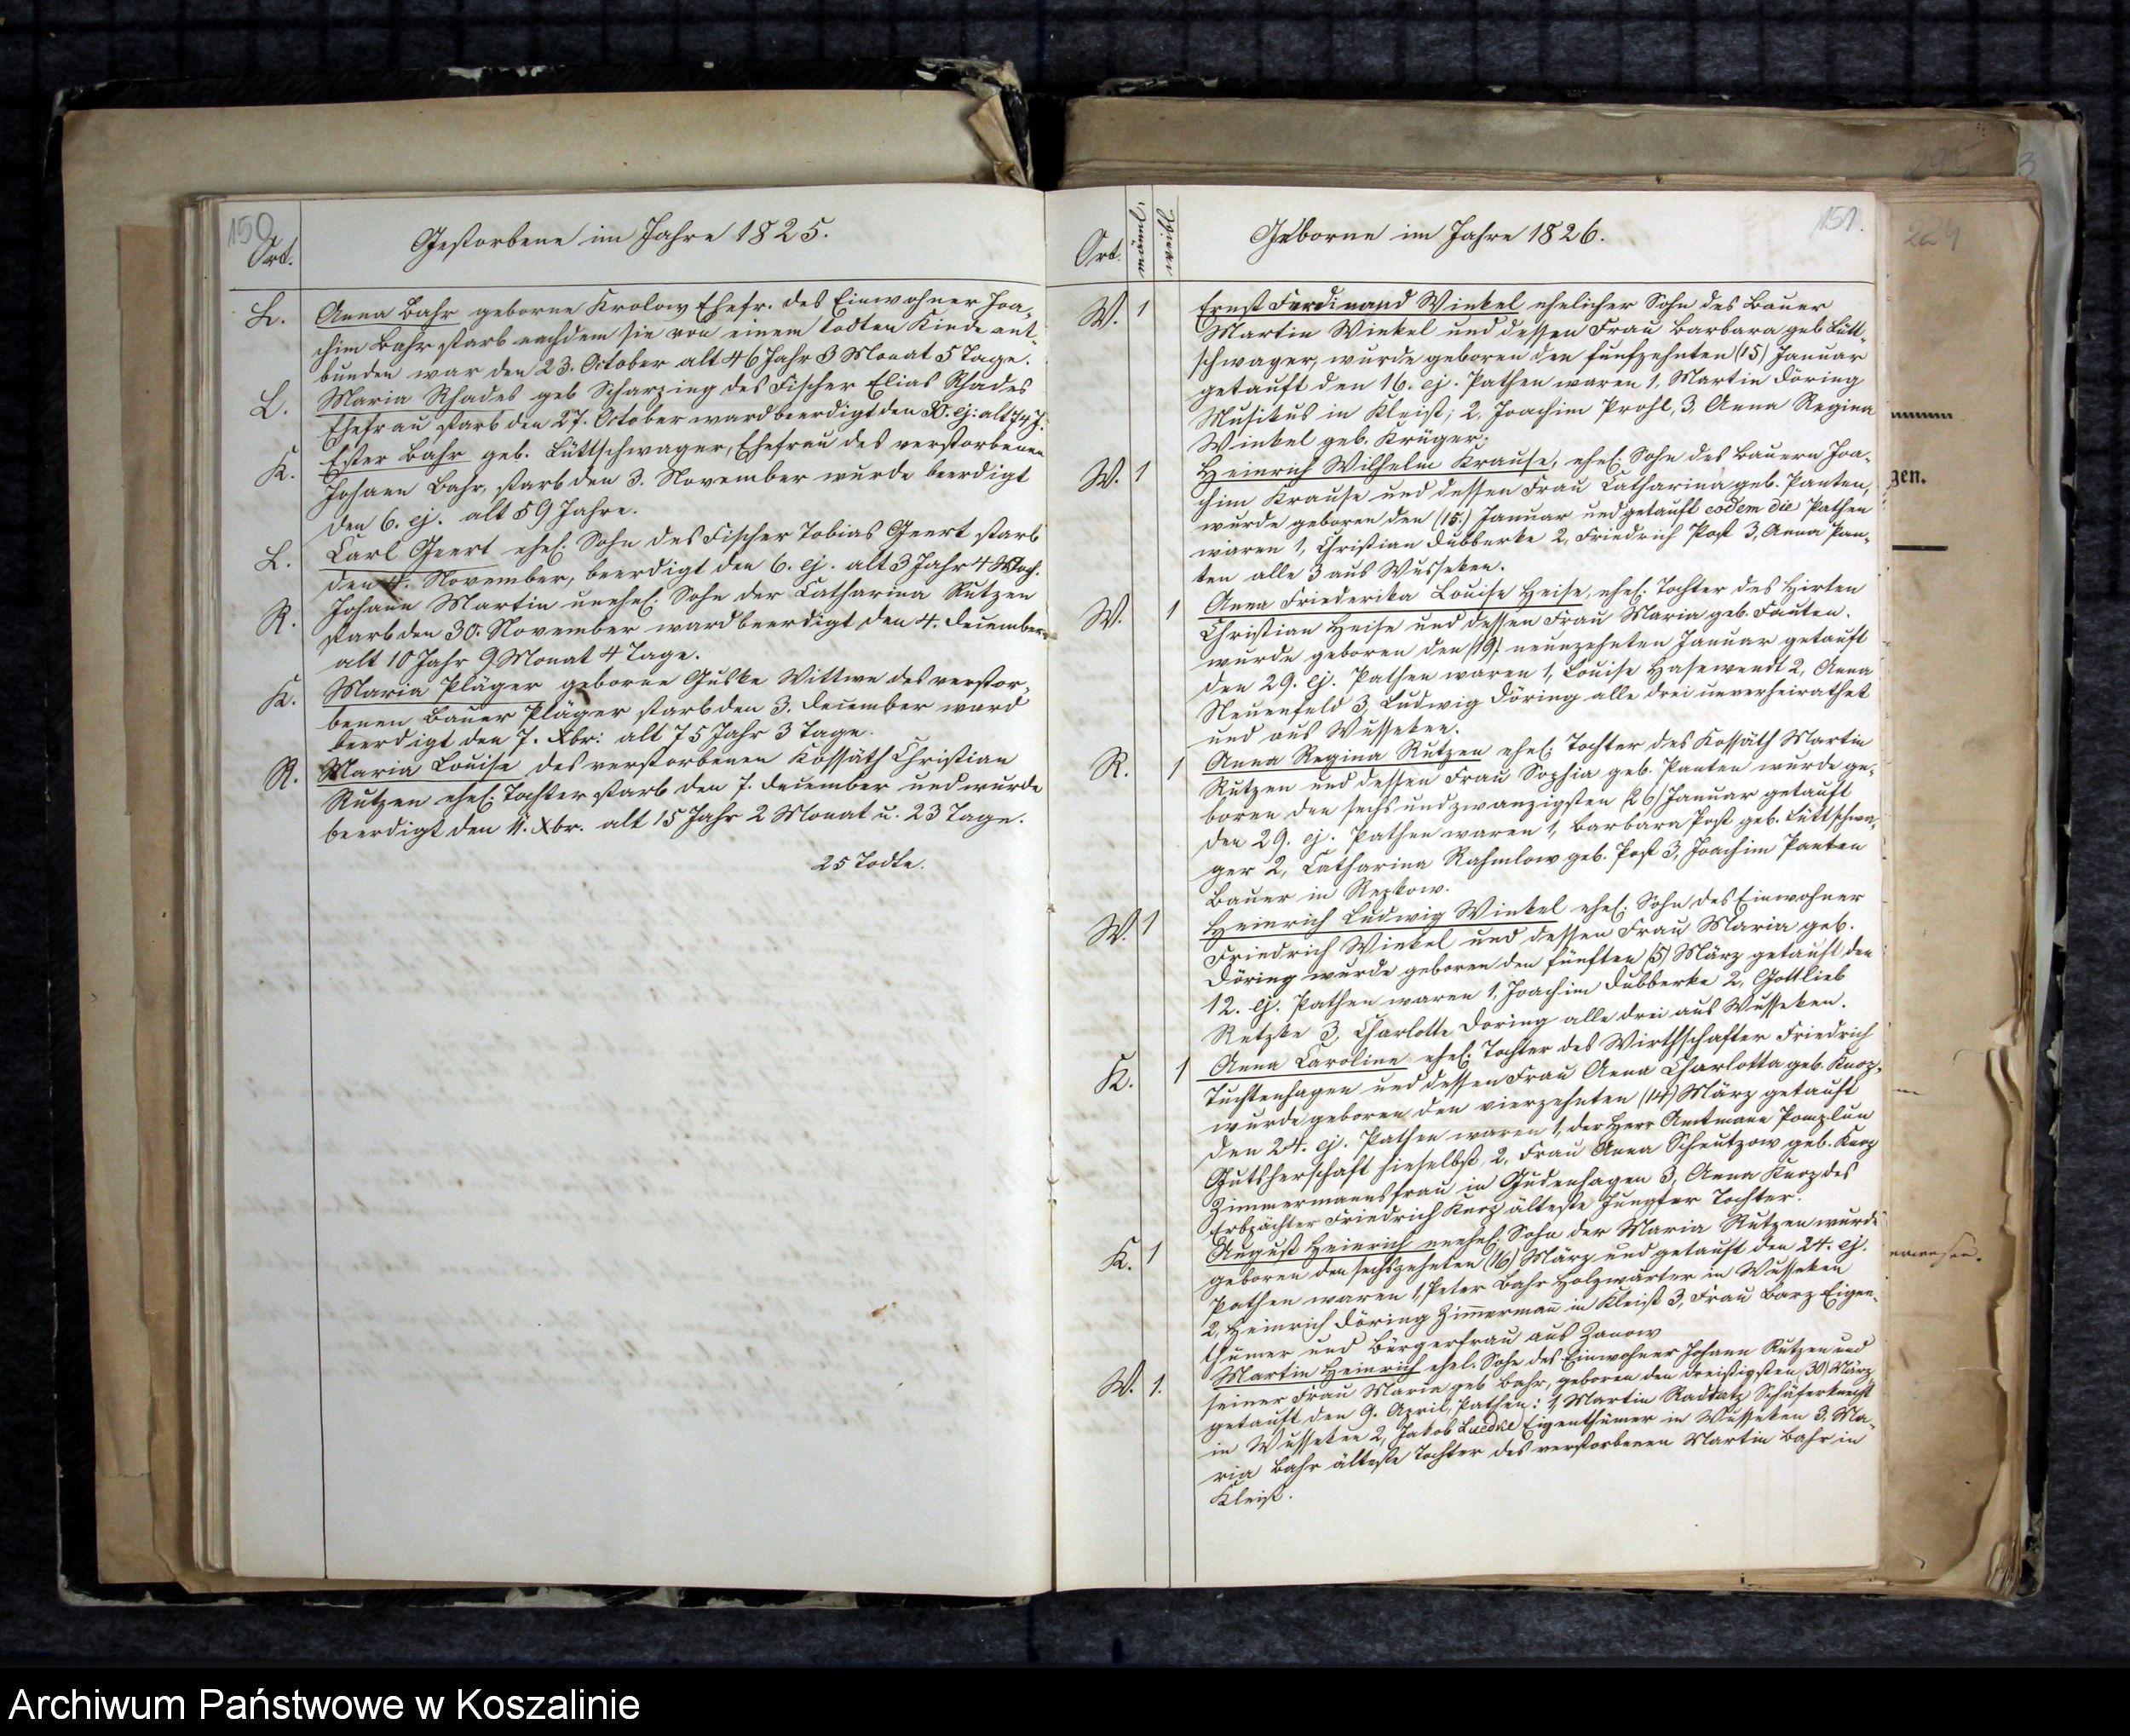 150
Ort.
Gestorbene im Jahre 1825.
L. Anna Bahr geborne Krolow Ehefr. des Einwohner Joa-
chim Bahr starb nachdem sie von einem todten Kinde ent-
bunden war den 23. October alt 46 Jahr 3 Monat 5 Tage.
L. Maria Rhades geb Scharping des Fischer Elias Rhades
Ehefrau starb den 27. October ward beerdigt den 30. ej: alt 74 J.
K. Ester Bahr geb. Lüttschwager, Ehefrau des verstorbenen
Johann Bahr, starb den 3. November wurde beerdigt
den 6. ej. alt 59 Jahre.
L. Carl Geert ehel. Sohn des Fischer Tobias Geert starb
den 4. November, beerdigt den 6. ej. alt 3 Jahr 4 Woch.
R. Johann Martin unehel. Sohn der Catharina Rutzen
starb den 30. November ward beerdigt den 4. December
alt 10 Jahr 9 Monat 4 Tage.
K. Maria Pläger geborne Guske Wittwe des verstor-
benen Bauer Pläger starb den 3. December ward
beerdigt den 7. Xbr: alt 75 Jahr 3 Tage.
R. Maria Louise des verstorbenen Kossäth Christian
Rutzen ehel. Tochter starb den 7. December und wurde
beerdigt den 11. Xbr. alt 15 Jahr 2 Monat u. 23 Tage.
25 Todte.
151.
Ort.
Geborne im Jahre 1826.
W. 1 Ernst Ferdinand Winkel ehelicher Sohn des Bauer
Martin Winkel und dessen Frau Barbara geb Lütt-
schwager, wurde geboren den funfzehnten (15) Januar
getauft den 16. ej. Pathen waren 1, Martin Döring
Musikus in Kleist; 2, Joachim Prohl, 3, Anna Regina
Winkel geb. Krüger.
W. 1 Heinrich Wilhelm Krause, ehel. Sohn des Bauern Joa-
chim Krause und dessen Frau Catharina geb. Panten,
wurde geboren den (15.) Januar und getauft eodem die Pathen
waren 1, Christian Dubberke 2, Friedrich Post 3, Anna Pan-
ten alle 3 aus Wusseken.
W. 1 Anna Friederika Louise Heise, ehel. Tochter des Hirten
Christian Heise und dessen Frau Maria geb. Fauten.
wurde geboren den (19) neunzehnten Januar getauft
den 29. ej. Pathen waren 1, Louise Hasewendt 2, Anna
Neuenfeld 3, Ludwig Döring alle drei unverheirathet
und aus Wusseken.
R. 1 Anna Regina Rutzen ehel. Tochter des Kossäth Martin
Rutzen und dessen Frau Sophia geb. Panten wurde ge-
boren den sechs und zwanzigsten (26) Januar getauft
den 29. ej. Pathen waren 1, Barbara Post geb. Lüttschwa-
ger 2, Catharina Rahmlow geb. Post 3, Joachim Panten
Bauer in Repkow.
W. 1 Heinrich Ludwig Winkel ehel. Sohn des Einwohner
Friedrich Winkel und dessen Frau Maria geb.
Döring wurde geboren den fünften (5) März getauft den
12. ej. Pathen waren 1, Joachim Dubberke 2, Gottlieb
Retzke 3, Charlotte Doring alle drei aus Wusseken.
K. 1 Anna Caroline ehel. Tochter des Wirthschafter Friedrich
Tuchtenhagen und dessen Frau Anna Charlotta geb. Knop,
wurde geboren den vierzehnten (14) März getauft
den 24. ej. Pathen waren 1, der Herr Amtmann Pomplun
Gutsherschaft hieselbst, 2, Frau Anna Scheutzow geb. Knop
Zimmermannsfrau in Gudenhagen 3, Anna Knop des
Erbpächter Friedrich Knop älteste Jungfer Tochter.
K. 1 August Heinrich unehel. Sohn der Maria Rutzen wurde
geboren den sechszehnten (16) März und getauft den 24. ej.
Pathen waren 1, Peter Bahr Holzwärter in Wusseken
2, Heinrich Döring Zimmermann in Kleist 3, Frau Barz Eigen-
thümer und Bürgerfrau aus Zanow
W. 1. Martin Heinrich ehel. Sohn des Einwohner Johann Rutzen und
seiner Frau Maria geb Bahr, geboren den dreißigsten (30) März
getauft den 9. April, Pathen: 1, Martin Raddatz Schäferknecht
in Wusseken 2, Jakob Luedke Eigenthümer in Wusseken 3, Ma-
ria Bahr älteste Tochter des verstorbenen Martin Bahr in
Kleist.
224
gen.
Archiwum Państwowe w Koszalinie